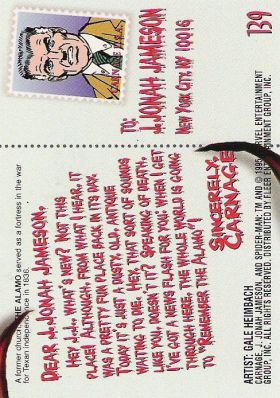 A former church, THE ALAMO served as a fortress in the war
for Texan independence in 1836.
DEAR J. JONAH JAMESON,
HEY J.J., WHAT'S NEW? NOT THIS
PLACE! ALTHOUGH, FROM WHAT I HEAR, IT
WAS A PRETTY FUN PLACE BACK IN ITS DAY.
TODAY IT'S JUST A MUSTY, OLD, ANTIQUE
WAITING TO DIE. HEY, THAT SORT OF SOUNDS
LIKE YOU, DOESN'T IT? SPEAKING OF DEATH,
I'VE GOT A NEWS FLASH FOR YOU: WHEN I GET
THROUGH HERE, THE WHOLE WORLD IS GOING
TO "REMEMBER THE ALAMO"!
SINCERELY,
CARNAGE
TO:
J. JONAH JAMESON
NEW YORK CITY, NY 10016
139
ARTIST: DALE HEIMBACH
CARNAGE, J. JONAH JAMESON, AND SPIDER-MAN: TM AND © 1995 MARVEL ENTERTAINMENT
GROUP, INC. ALL RIGHTS RESERVED. DISTRIBUTED BY FLEER ENTERTAINMENT GROUP, INC.